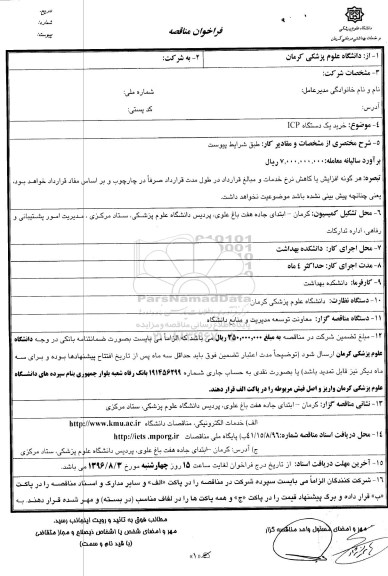 تاریخ:
شماره:
پیوست:
فراخوان مناقصه
دانشگاه علوم پزشکی
و خدمات بهداشتی درمانی کرمان
۱- از: دانشگاه علوم پزشکی کرمان
۲- به شرکت:
۳- مشخصات شرکت:
نام و نام خانوادگی مدیرعامل: شماره ملی:
آدرس: کد پستی:
۴- موضوع: خرید یک دستگاه ICP
۵- شرح مختصری از مشخصات و مقادیر کار: طبق شرایط پیوست
برآورد سالیانه معامله: ۷,۰۰۰,۰۰۰,۰۰۰ ریال
تبصره: هر گونه افزایش یا کاهش نرخ خدمات و مبالغ قرارداد در طول مدت قرارداد صرفاً در چارچوب و بر اساس مفاد قرارداد خواهد بود،
یعنی چنانچه پیش بینی نشده باشد موضوعیت نخواهد داشت.
۶- محل تشکیل کمیسیون: کرمان – ابتدای جاده هفت باغ علوی، پردیس دانشگاه علوم پزشکی، ستاد مرکزی ، مدیریت امور پشتیبانی و
رفاهی، اداره تدارکات
۷- محل اجرای کار: دانشکده بهداشت
۸- مدت اجرای کار: حداکثر ۴ ماه
۹- کارفرما: دانشکده بهداشت
ParsNamadData
۱۰- دستگاه نظارت: دانشگاه علوم پزشکی کرمان
۱۱- دستگاه مناقصه گزار: معاونت توسعه مدیریت و منابع دانشگاه
۱۲- مبلغ تضمین شرکت در مناقصه به مبلغ ۳۵۰,۰۰۰,۰۰۰ ریال می باشد که الزاماً می بایست بصورت ضمانتنامه بانکی در وجه دانشگاه
علوم پزشکی کرمان ارسال شود (توضیحاً مدت اعتبار تضمین فوق باید حداقل سه ماه پس از تاریخ افتتاح پیشنهادها بوده و برای سه
ماه دیگر نیز قابل تمدید باشد) یا بصورت نقدی به حساب جاری شماره ۱۹۱۴۵۶۲۹۹ بانک رفاه شعبه بلوار جمهوری بنام سپرده های دانشگاه
علوم پزشکی کرمان واریز و اصل فیش مربوطه را در پاکت الف قرار دهند.
۱۳- نشانی مناقصه گزار: کرمان – ابتدای جاده هفت باغ علوی، پردیس دانشگاه علوم پزشکی، ستاد مرکزی
الف) خدمات الکترونیکی، مناقصات دانشگاه http://www.kmu.ac.ir
۱۴- محل دریافت اسناد مناقصه شماره: ۴۱/۱۵/۸/۹۶ ب) پایگاه ملی مناقصات http://iets.mporg.ir
ج) آدرس: کرمان –ابتدای جاده هفت باغ علوی، پردیس دانشگاه علوم پزشکی، ستاد مرکزی
۱۵- آخرین مهلت دریافت اسناد: از تاریخ درج فراخوان لغایت ساعت ۱۵ روز چهارشنبه مورخ ۱۳۹۶/۸/۳ می باشد.
۱۶- شرکت کنندگان الزاماً می بایست سپرده شرکت در مناقصه را در پاکت «الف» و سایر مدارک و اسناد مناقصه را در پاکت
«ب» قرار داده و برگ پیشنهاد قیمت را در پاکت «ج» و همه پاکت ها را در لفاف مناسب (در بسته) و مهر شده قرار دهند.
مهر و امضای مسئول واحد مناقصه گزار
مطالب فوق به تائید و رویت اینجانب رسید.
مهر و امضای شخص یا اشخاص ذیصلاح و مجاز متقاضی
(با قید نام و سمت)